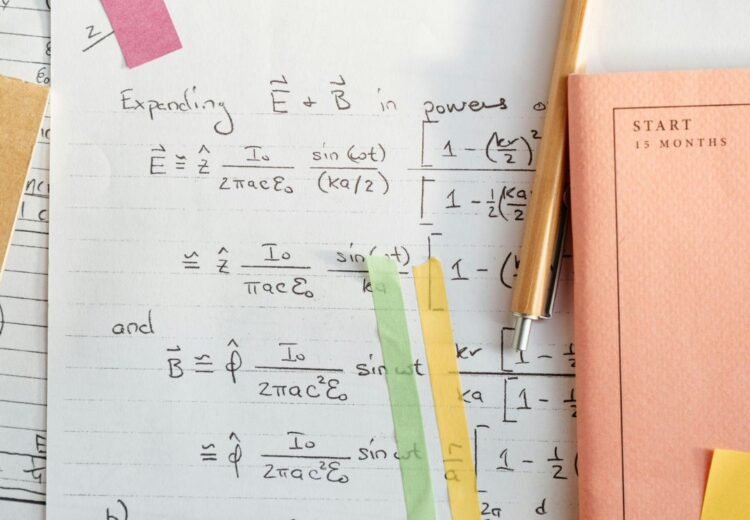 2
Expanding E⃗ + B⃗ in powers o
E⃗ ≅ ẑ I₀/2πacε₀ sin(ωt)/(ka/2) [1 - (kr/2)²/[1 - ½(ka/2
≅ ẑ I₀/πacε₀ sin(ωt)/ka [1 - (
and
B⃗ ≅ φ̂ I₀/2πac²ε₀ sin ωt kr/ka [1 - ½/[1 - ½
≅ φ̂ I₀/2πac²ε₀ sin ωt r/a [1 - ½(
b) 2π d
START
15 MONTHS